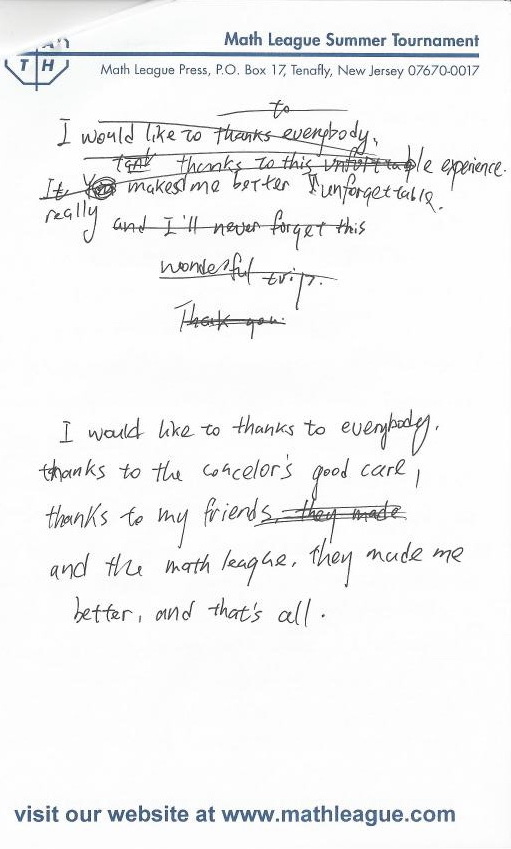 T H
Math League Summer Tournament
Math League Press, P.O. Box 17, Tenafly, New Jersey 07670-0017
to
I would like to thanks everybody,
thanks to this unforgettable experience.
It makes me better unforgettable.
really and I'll never forget this
wonderful trip.
Thank you.
I would like to thanks to everybody.
thanks to the concelor's good care,
thanks to my friends, they made
and the math league, they made me
better, and that's all.
visit our website at www.mathleague.com